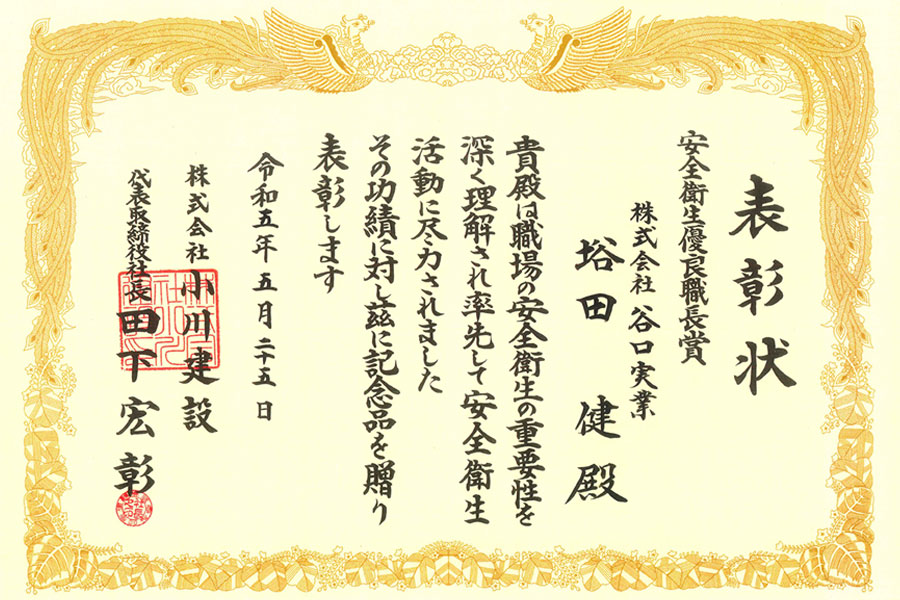 表彰状
安全衛生優良職長賞
株式会社 谷口実業
峪田 健 殿
貴殿は職場の安全衛生の重要性を
深く理解され率先して安全衛生
活動に尽力されました
その功績に対し茲に記念品を贈り
表彰します
令和五年 五月 二十五日
株式会社 小川建設
代表取締役社長 田下宏彰